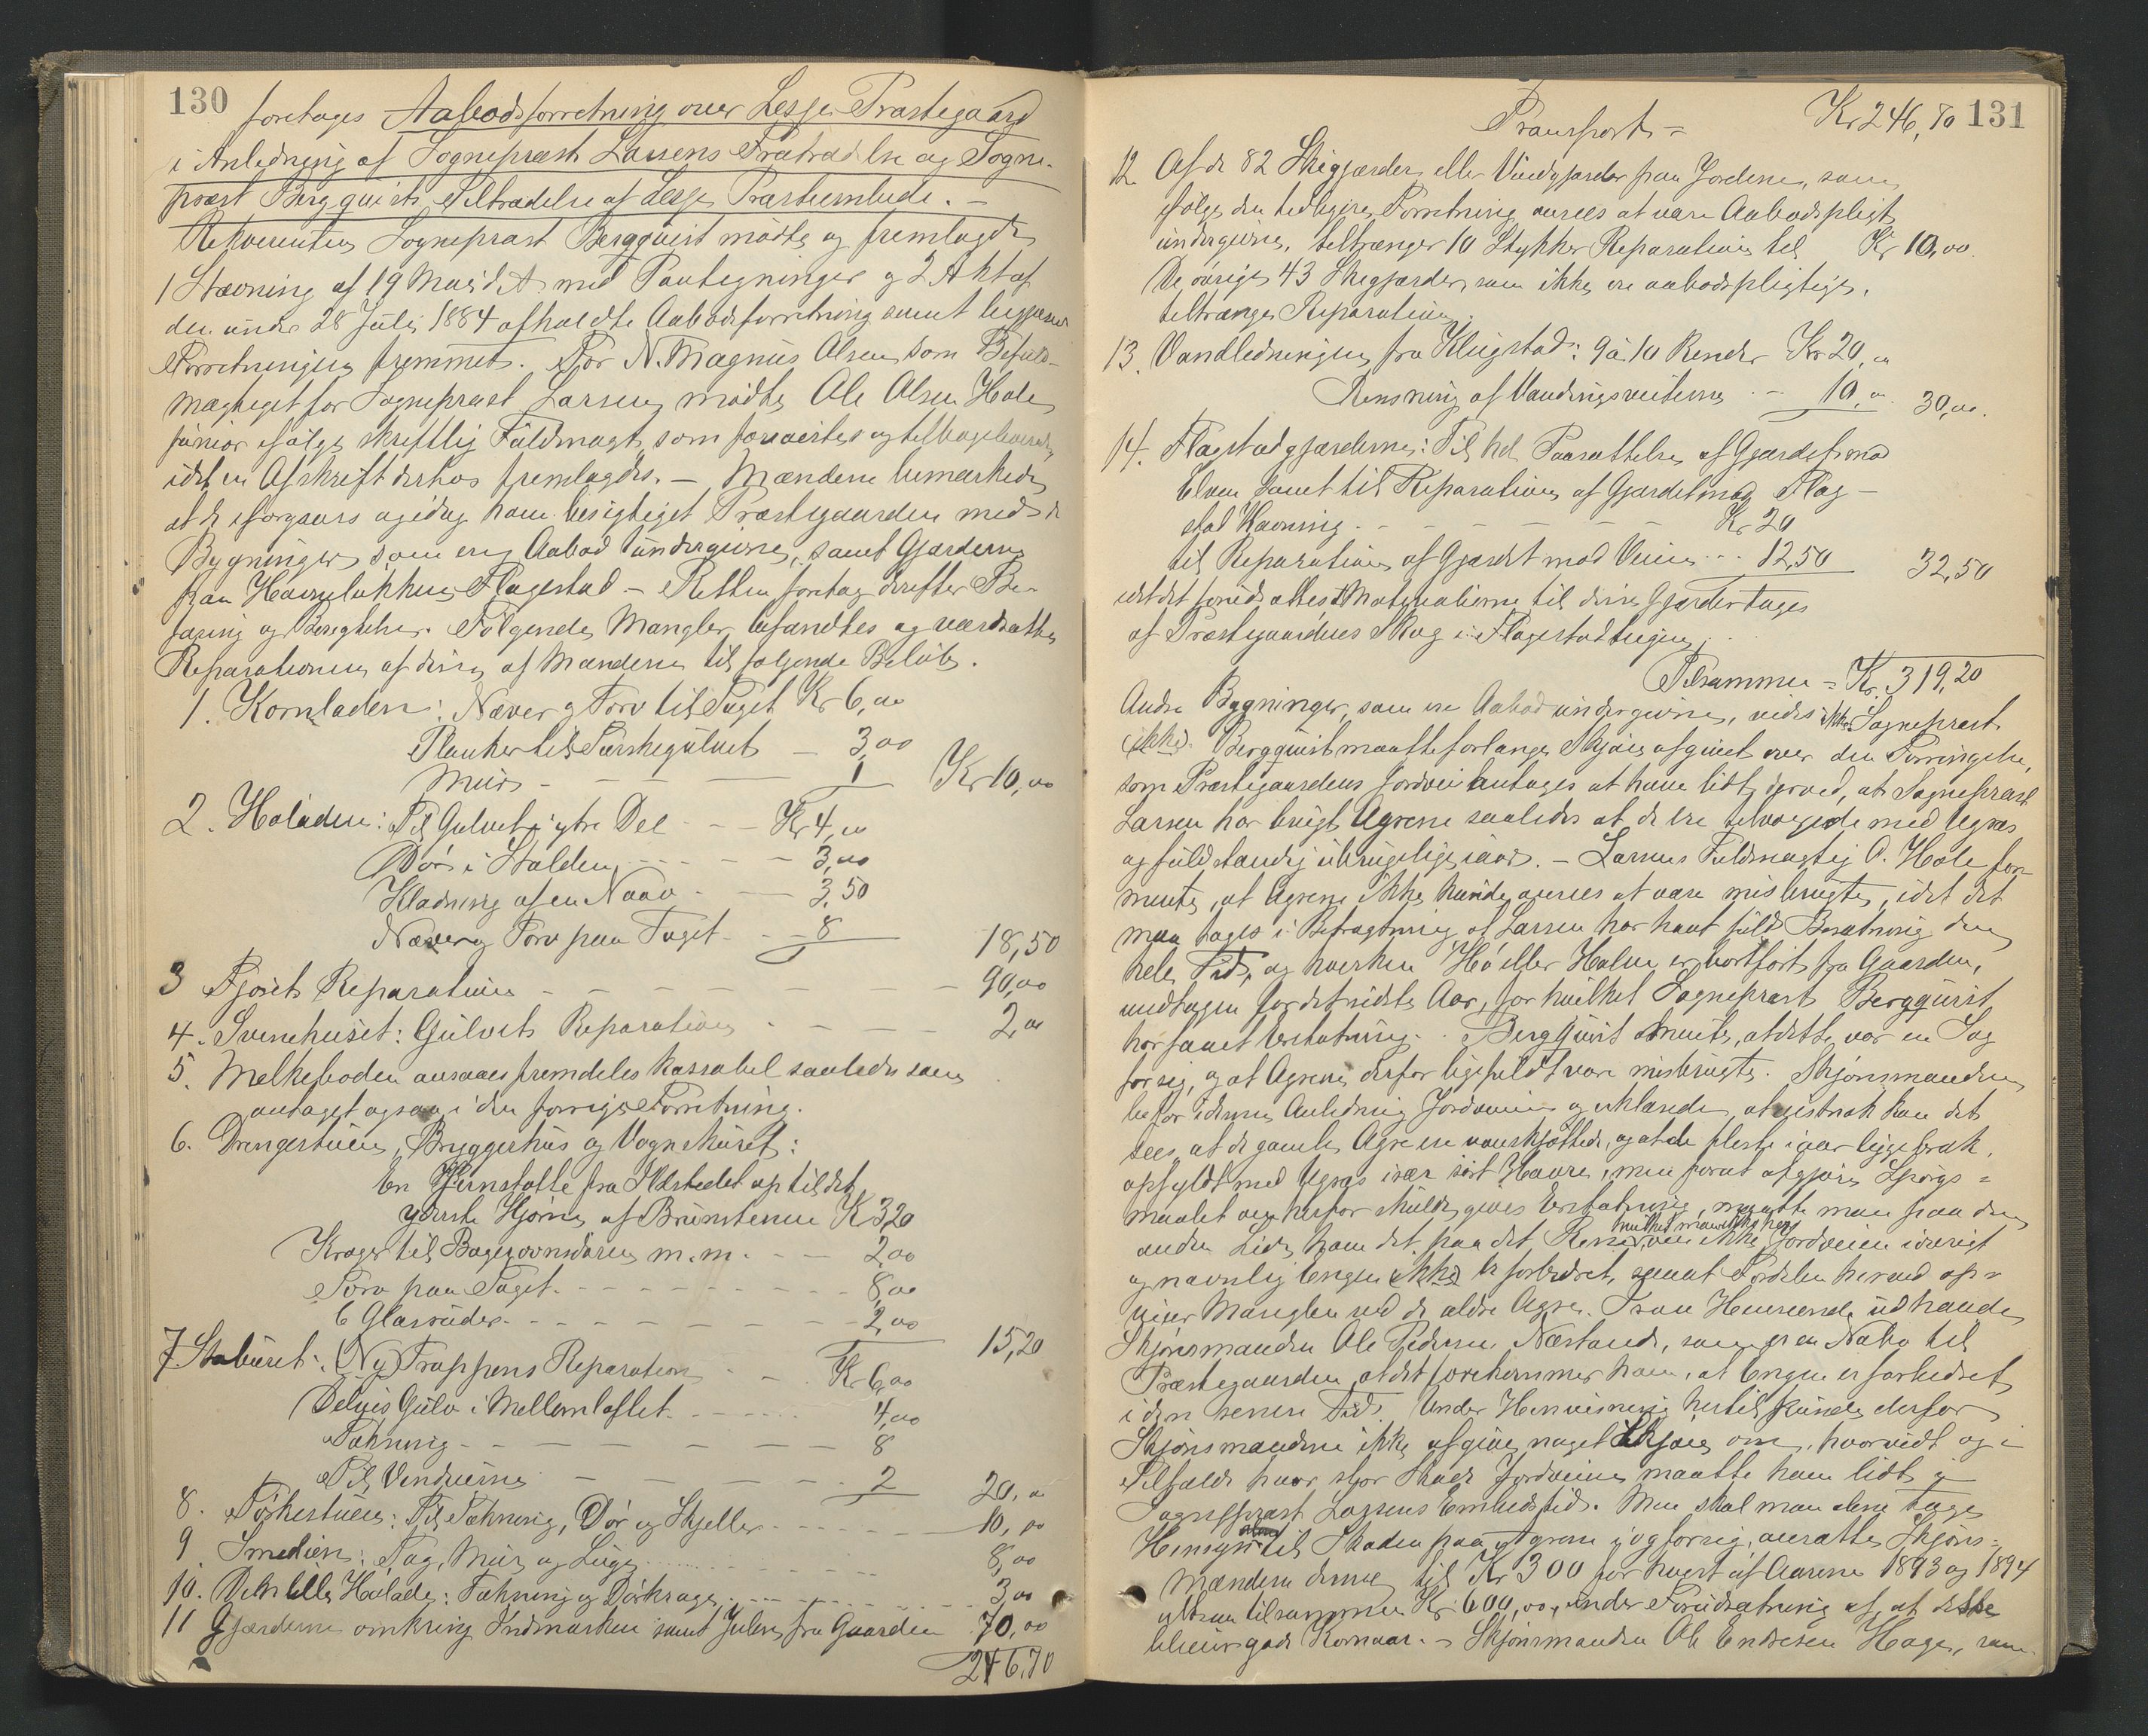 130
foretages Aabodsforretning over Lesje Præstegaard
i Anledning af Sognepræst Larsens Fratrædelse og Sogne-
præst Bergquists Tiltrædelse af Lesje Præsteembede. -
Rekvirenten Sognepræst Bergquist mødte og fremlagde
1 Stævning af 19 Mai d. A. med Paategninger og 2 Akt af
den under 28 Juli 1884 afholdte Aabodsforretning samt begjærede
Forretningen fremmet. For N. Magnus Olsen som Befuld-
mægtiget for Sognepræst Larsen mødte Ole Olsen Hole
junior ifølge skriftlig Fuldmagt, som forevistes og tilbageleveredes,
idet en Afskrift derhos fremlagdes. - Mændene bemærkede,
at de iforgaars og idag have besigtiget Præstegaarden med de
Bygninger, som ere Aabod undergivne, samt Gjærderne
paa Havnelykken Flagestad - Retten foretog derefter Be-
faring og Besigtelse. Følgende Mangler befandtes og værdsattes
Reparationen af disse af Mændene til følgende Beløb.
1. Kornladen: Næver og Torv til Taget Kr 6,00
Planker til Tærskegulvet - 3,00
Mur - - - 1 Kr 10,00
2. Høladen: Til Gulvet i ytre Del - - Kr 4,00
Dør i Stalden - - - - 3,00
Klædning af en Nøv - - 3,50
Næver og Torv paa Taget - - 8 18,50
3 Fjøsets Reparation - - - - - - - 90,00
4. Svinehuset: Gulvets Reparation - - - - 2,00
5. Melkeboden ansaaes fremdeles kassabel saaledes som
antaget ogsaa i den forrige Forretning.
6. Drengestuen, Bryggerhus og Vognskuret:
En Hjørnstolte fra Ildstedet op til det
yderste Hjørne af Brunstenen K 3,20
Kroger til Bagerovnsdøren m. m. - - 2,00
Torv paa Taget - - - - - - - 8,00
6 Glasruder - - - - - - - 2,00 15,20
7 Staburet: (Ny) Trappens Reparation - - Kr 6,00
Delvis Gulv i Mellemloftet - - - - 4,00
Tækning - - - - - - - 8
Til Vinduerne - - - - - 2 20,00
8. Tørkestuen: Til Tækning, Dør og Skjeller - - - - 10,00
9 Smedien: Tag, Mur og Luge - - - - 8,00
10. Den lille Hølade: Tækning og Dørkroge - - - - 3,00
11 Gjærderne omkring Indmarken samt Julen fra Gaarden 70,00
246,70
131
Transport = Kr 246,70
12. Af de 82 Skigjærder eller Vindgjærder paa Jorderne, som
ifølge den tidligere Forretning ansees at være Aabodspligt
undergivne, tiltrænger 10 Stykker Reparation til Kr 10,00.
De øvrige 43 Skigjærder, som ikke ere aabodspligtige,
tiltrænge Reparation.
13. Vandledningen fra Klugstad: 9 à 10 Render Kr 20,00
Rensning af Vandingsveiterne - - 10,00. 30,00.
14. Flagstadgjærderne: Til hel Paasættelse af Gjærdet mod
Elven samt til Reparation af Gjærdet mod Flag-
stad Havning - - - - - - - Kr 20
til Reparation af Gjærdet mod Veien - - 12,50 32,50
idet det forudsættes at Materialierne til disse Gjærder tages
af Præstegaardens Skog i Flagestadteigen.
Tilsammen = Kr. 319,20
Andre Bygninger, som ere Aabod undergivne, vides ikke. Sognepræst
(ikke). Bergquist maatte forlange Skjøn afgivet over den Forringelse,
som Præstegaardens Jordvei antages at have lidt derved, at Sognepræst
Larsen har brugt Agrene saaledes at de ere tilvoxede med Ugræs
og fuldstændig ubrugelige iaar. - Larsens Fuldmægtig O. Hole for-
mente, at Agrene ikke kunde ansees at være misbrugte, idet det
maa tages i Betragtning at Larsen har havt fuld Besætning den
hele Tid, og hverken Hø eller Halm er bortført fra Gaarden,
undtagen for det sidste Aar, for hvilket Sognepræst Bergquist
har faaet Erstatning. - Bergquist mente, at dette var en Sag
for sig, og at Agrene derfor ligefuldt vare misbrugte. Skjønsmændene
befor i denne Anledning Jordveien og erklærede, at vistnok kan det
sees, at de gamle Agre ere vanskjøttede, og at de fleste iaar ligge brak,
opfyldt med Ugræs især sort Havre, men forat afgjøre Spørgs-
maalet om herfor skulde gives Erstatning, maatte man paa den
anden Side have det paa det Rene, hvilket man ikke har, om ikke Jordveien iøvrigt
og navnlig Engen (ikke) er forbedret, samt Fordelen herved op-
veier Manglen ved de ældre Agre. Frau Henseende udhævede
Skjønsmanden Ole Pedersen Næstande, som er en Nabo til
Præstegaarden, at det forekommer ham, at Engen er forbedret
i den senere Tid. Under Henvisning hertil kunde derfor
Skjønsmændene ikke afgive noget Skjøn om, hvorvidt og i
Tilfælde hvor stor Skade Jordveien maatte have lidt i
Sognepræst Larsens Embedstid. Men skal man alene tage
Hensyn til Skaden paa Agrene i og for sig, ansatte Skjøns-
mændene denne til Kr 300 for hvert af Aarene 1893 og 1894
altsaa tilsammen Kr. 600,00, under Forudsætning af, at disse
bleve gode Kornaar. - Skjønsmanden Ole Endresen Hage, som